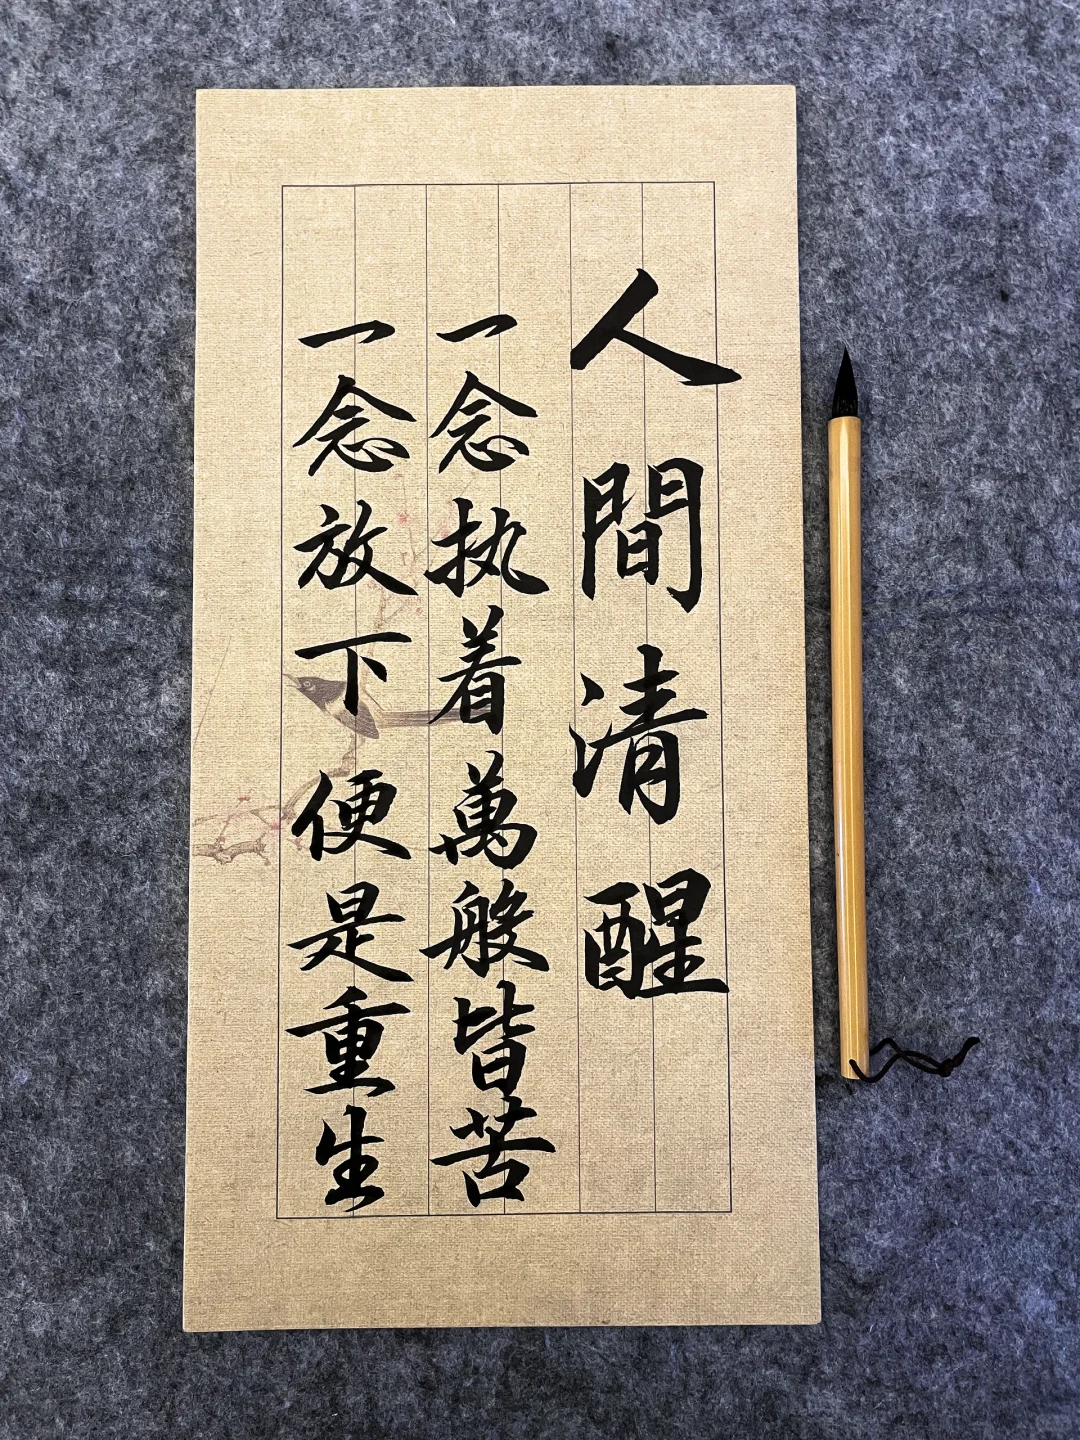 人間清醒
一念执着萬般皆苦
一念放下便是重生